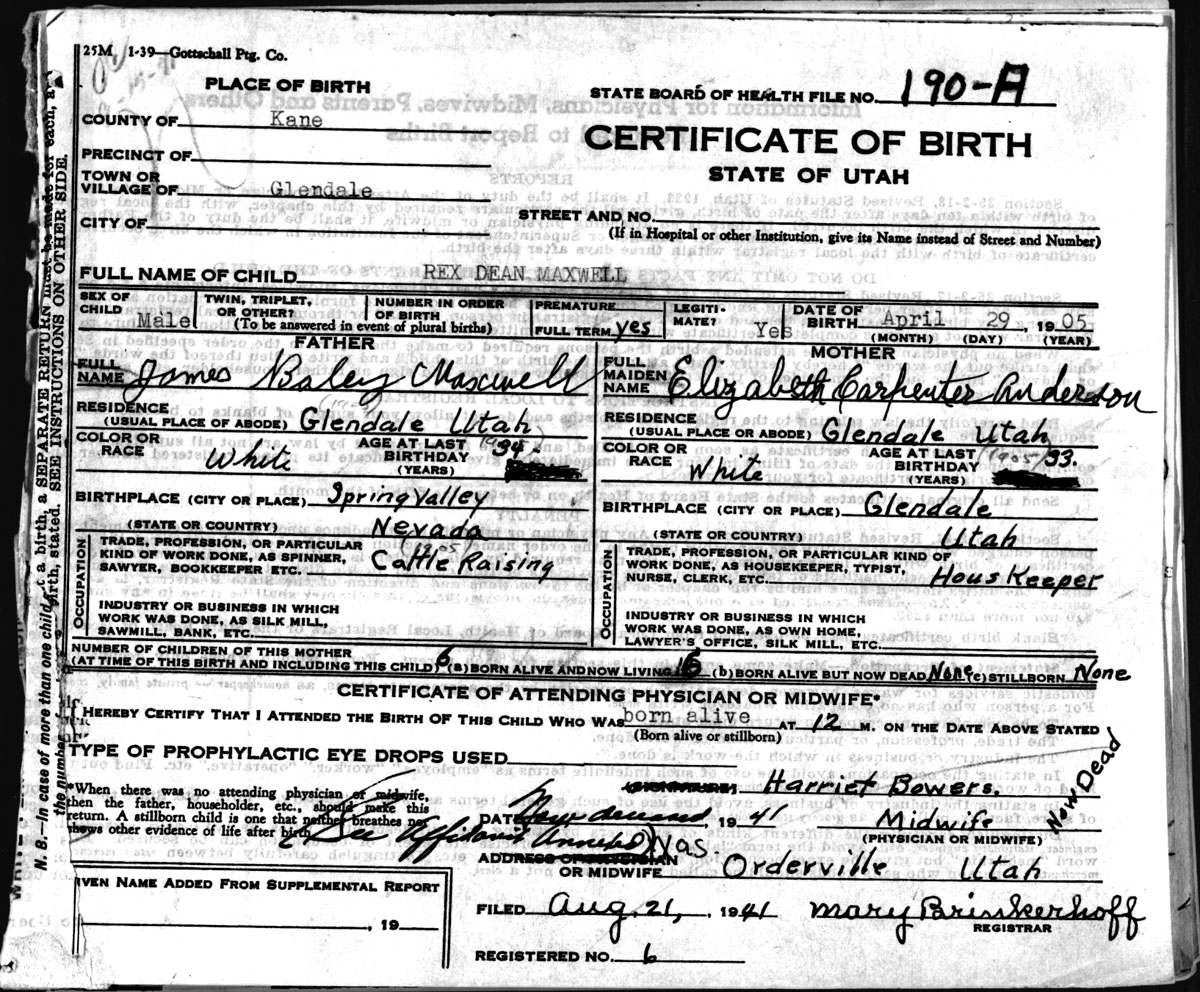 25M, 1-39—Gottschall Ptg. Co.
PLACE OF BIRTH
STATE BOARD OF HEALTH FILE NO. 190-A
COUNTY OF Kane
CERTIFICATE OF BIRTH
PRECINCT OF
STATE OF UTAH
TOWN OR VILLAGE OF Glendale
STREET AND NO.
CITY OF
(If in Hospital or other Institution, give its Name instead of Street and Number)
FULL NAME OF CHILD REX DEAN MAXWELL
SEX OF CHILD Male
TWIN, TRIPLET, OR OTHER?
NUMBER IN ORDER OF BIRTH
(To be answered in event of plural births)
PREMATURE
FULL TERM yes
LEGITIMATE? Yes
DATE OF BIRTH April 29, 1905
(MONTH) (DAY) (YEAR)
FATHER
FULL NAME James Baley Maxwell
RESIDENCE (USUAL PLACE OF ABODE) Glendale Utah
COLOR OR RACE White
AGE AT LAST BIRTHDAY (YEARS) 34.
BIRTHPLACE (CITY OR PLACE) Spring Valley
(STATE OR COUNTRY) Nevada
OCCUPATION
TRADE, PROFESSION, OR PARTICULAR KIND OF WORK DONE, AS SPINNER, SAWYER, BOOKKEEPER ETC. Cattle Raising
(1905)
INDUSTRY OR BUSINESS IN WHICH WORK WAS DONE, AS SILK MILL, SAWMILL, BANK, ETC.
MOTHER
FULL MAIDEN NAME Elizabeth Carpenter Anderson
RESIDENCE (USUAL PLACE OR ABODE) Glendale Utah
COLOR OR RACE White
AGE AT LAST BIRTHDAY (YEARS) (1905) 33.
BIRTHPLACE (CITY OR PLACE) Glendale
(STATE OR COUNTRY) Utah
OCCUPATION
TRADE, PROFESSION, OR PARTICULAR KIND OF WORK DONE, AS HOUSEKEEPER, TYPIST, NURSE, CLERK, ETC. Hous Keeper
INDUSTRY OR BUSINESS IN WHICH WORK WAS DONE, AS OWN HOME, LAWYER'S OFFICE, SILK MILL, ETC.
NUMBER OF CHILDREN OF THIS MOTHER
(AT TIME OF THIS BIRTH AND INCLUDING THIS CHILD) 6 (a) BORN ALIVE AND NOW LIVING 6 (b) BORN ALIVE BUT NOW DEAD None (c) STILLBORN None
CERTIFICATE OF ATTENDING PHYSICIAN OR MIDWIFE*
I HEREBY CERTIFY THAT I ATTENDED THE BIRTH OF THIS CHILD WHO WAS born alive AT 12 M. ON THE DATE ABOVE STATED
(Born alive or stillborn)
TYPE OF PROPHYLACTIC EYE DROPS USED
*When there was no attending physician or midwife, then the father, householder, etc., should make this return. A stillborn child is one that neither breathes nor shows other evidence of life after birth.
See Affidavit Annexed
Harriet Bowers.
Now Dead
DATE Now deceased 1941
Midwife
(PHYSICIAN OR MIDWIFE)
Was.
ADDRESS OF PHYSICIAN OR MIDWIFE Orderville Utah
GIVEN NAME ADDED FROM SUPPLEMENTAL REPORT
, 19
FILED Aug. 21, 1941 Mary Brinkerhoff
REGISTRAR
REGISTERED NO. 6
N. B.—In case of more than one child at a birth, a SEPARATE RETURN must be made for each, and the number
birth, stated. SEE INSTRUCTIONS ON OTHER SIDE.